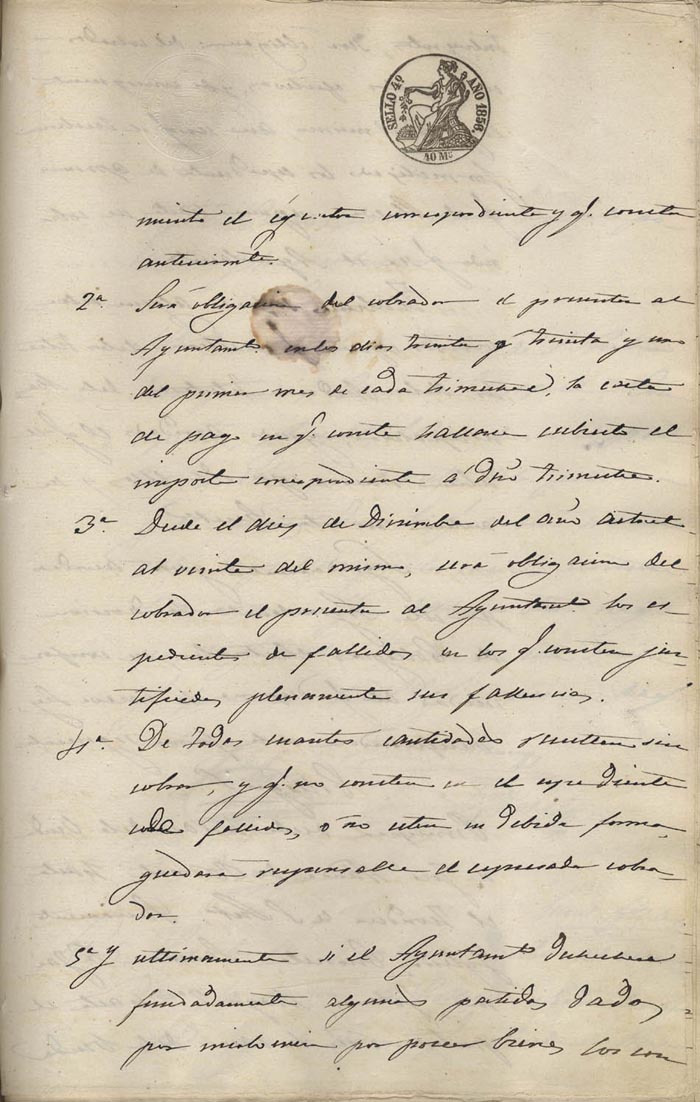 SELLO 4º AÑO 1856.
40 Ms
miento el correspondiente y q. consta
anteriormte.
2ª Será obligacion del cobrador el presentar al
Ayuntamto. en los dias treinta y treinta y uno
del primer mes de cada trimestre, la carta
de pago en q. conste hallarse cubierto el
importe correspondiente á dho trimestre.
3ª Desde el dies de Diciembre del año actual
al veinte del mismo, será obligacion del
cobrador el presentar al Ayuntamto. los es-
pedientes de fallidos en los q. consten jus-
tificadas plenamente sus falencias.
4ª De todas cuantas cantidades resulten sin
cobrar, y q. no consten en el espediente
de fallidos, ó no esten en debida forma,
quedará responsable el espresado cobra-
dor.
5ª y ultimamente si el Ayuntamto.
fundadamente algunas partidas dadas
por por poseer bienes los con